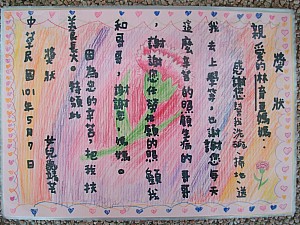 獎狀
親愛的林育夏媽媽：
感謝您幫我洗碗、掃地、送
我去上學等，也謝謝您每天
這麼辛苦的照顧生病的哥哥
，謝謝您什麼都願的照顧我
和哥哥，謝謝您，媽媽。
因為您的辛苦，把我扶
養長大。特頒此
獎狀
女兒
中華民國101年5月7日